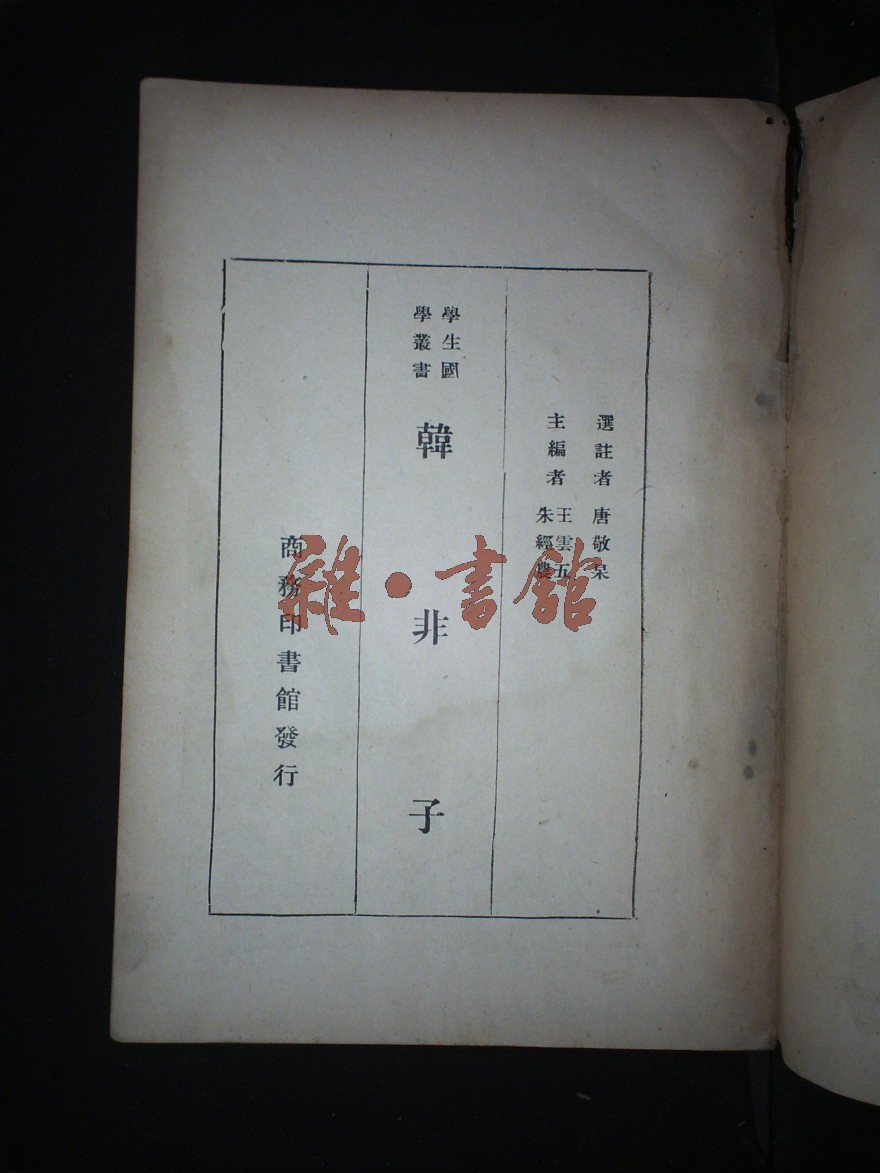 選註者 唐敬杲
主編者 王雲五
朱經農
學生國
學叢書
韓非子
商務印書館發行
雜·書館